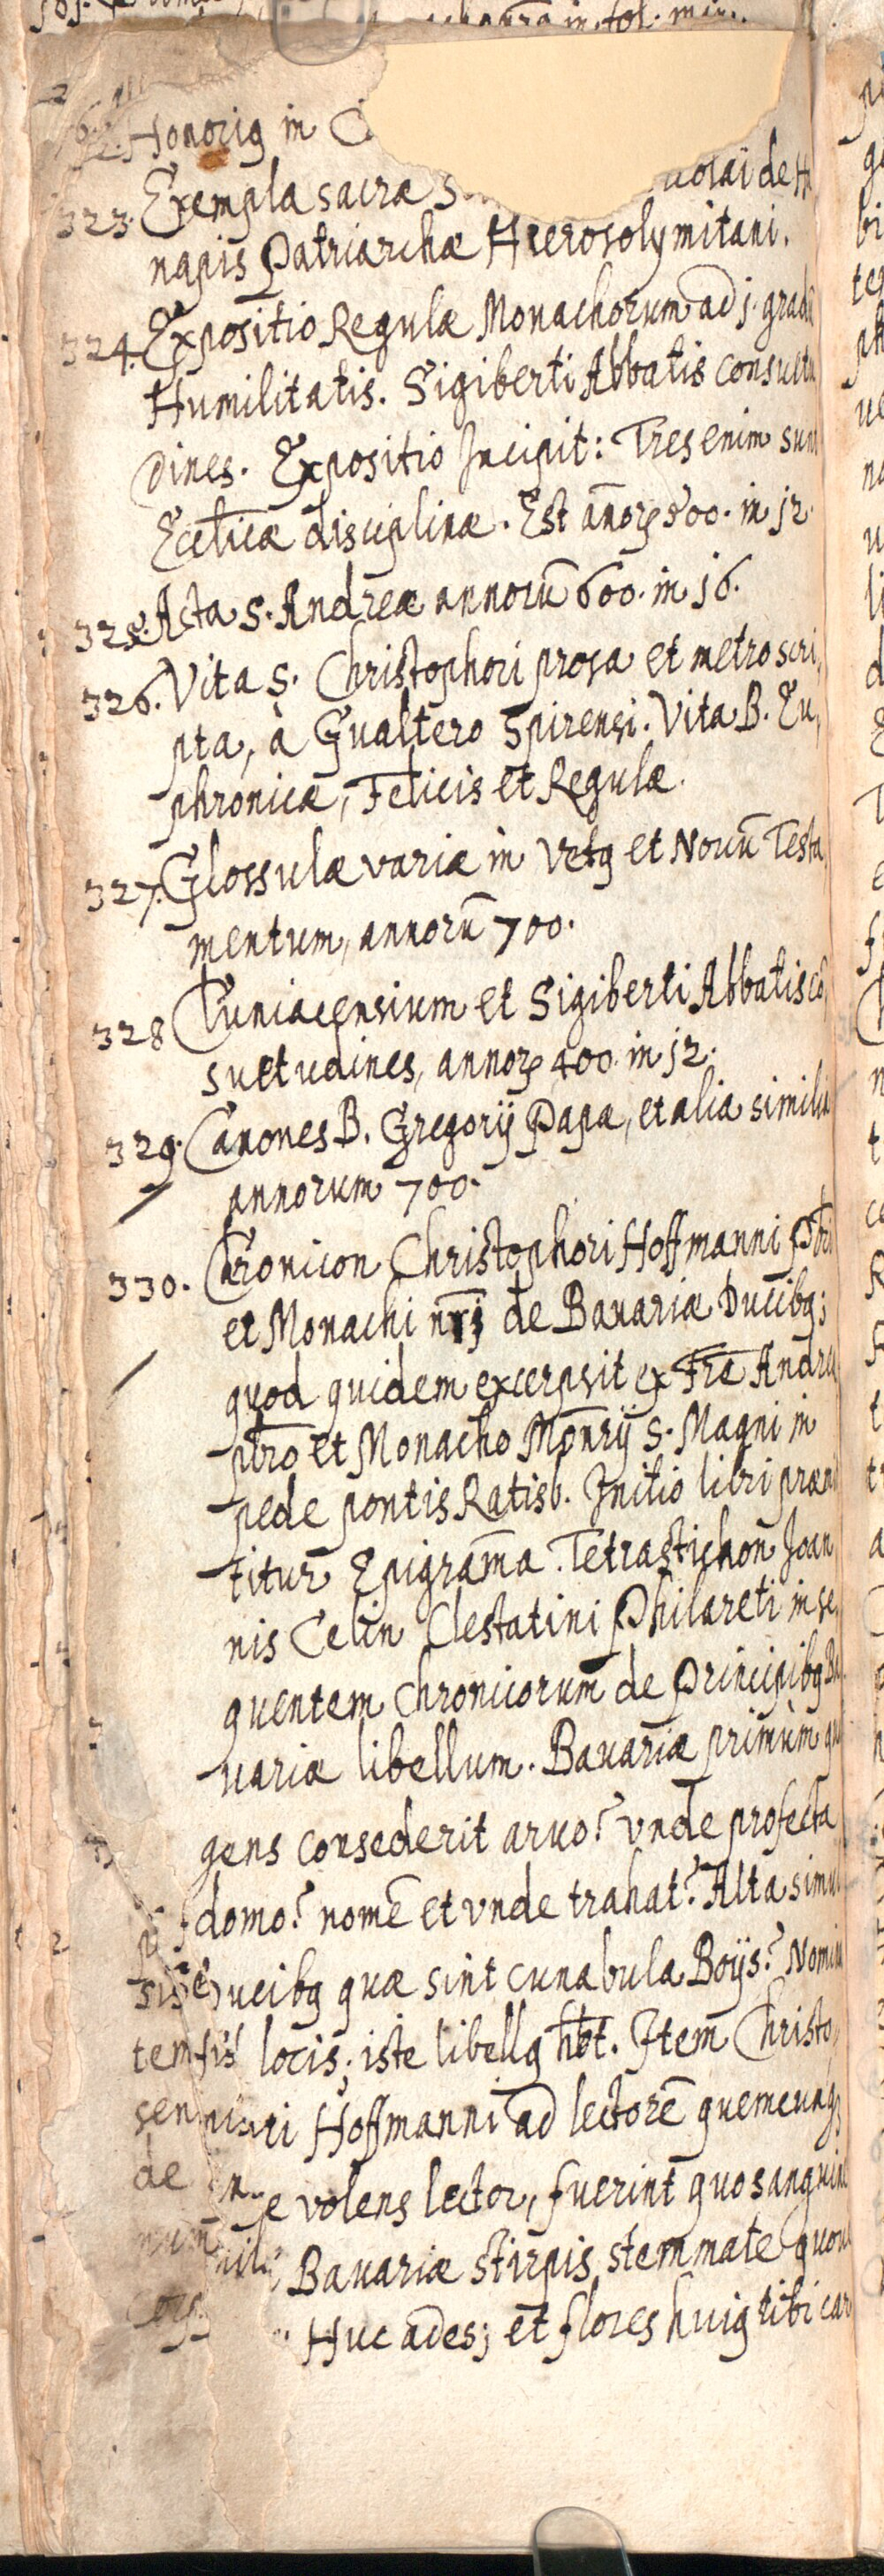 Honorig in
323. Exempla sacræ S. uolai de H
napis Patriarchæ Hierosolymitani.
324. Expositio Regulæ Monachorum ad j. gradū
Humilitatis. Sigiberti Abbatis consuetu
dines. Expositio Incipit: Tres enim sunt
Eccl̄icæ disciplinæ. Est an̄oꝝ 500. in j2.
325. Acta S. Andreæ annorū 600. in j6.
326. Vita S. Christophori prosa et metro scri,
pta, à Gualtero Spirensi. Vita B. Eu,
phronicæ, Felicis et Regulæ.
327. Glossulæ variæ in Vetꝯ et Nouū Testa
mentum, annorū 700.
328 Cluniacensium et Sigiberti Abbatis cō
suetudines, annoꝝ 400. in j2.
329. Canones B. Gregorij Papæ, et alia similia
annorum 700.
330. Chronicon Christophori Hoffmanni Pb̄ri
et Monachi nr̄j de Bauariæ Ducibꝯ;
quod quidem excerpsit ex Fr̄e Andrea
pb̄ro et Monacho Mōnrij S. Magni in
pede pontis Ratisb. Initio libri præmi
titur Epigram̄a Tetrastichon Joan
nis Celin Clestatini Philareti in se,
quentem Chronicorum de Principibꝯ Ba
uariæ libellum. Bauariæ primùm quæ
gens consederit aruo? vnde profecta
domo? nomē et vnde trahat? Alta simul
Ducibꝯ quæ sint cunabula Boijs? Nomina
locis; iste libellꝯ hb̄t. Item Christo,
Hoffmanni ad lectorē quemcunqꝫ
volens lector, fuerint quo sanguine
Bauariæ stirpis, stemmate quoue
Huc ades; et flores huiꝯ tibi car